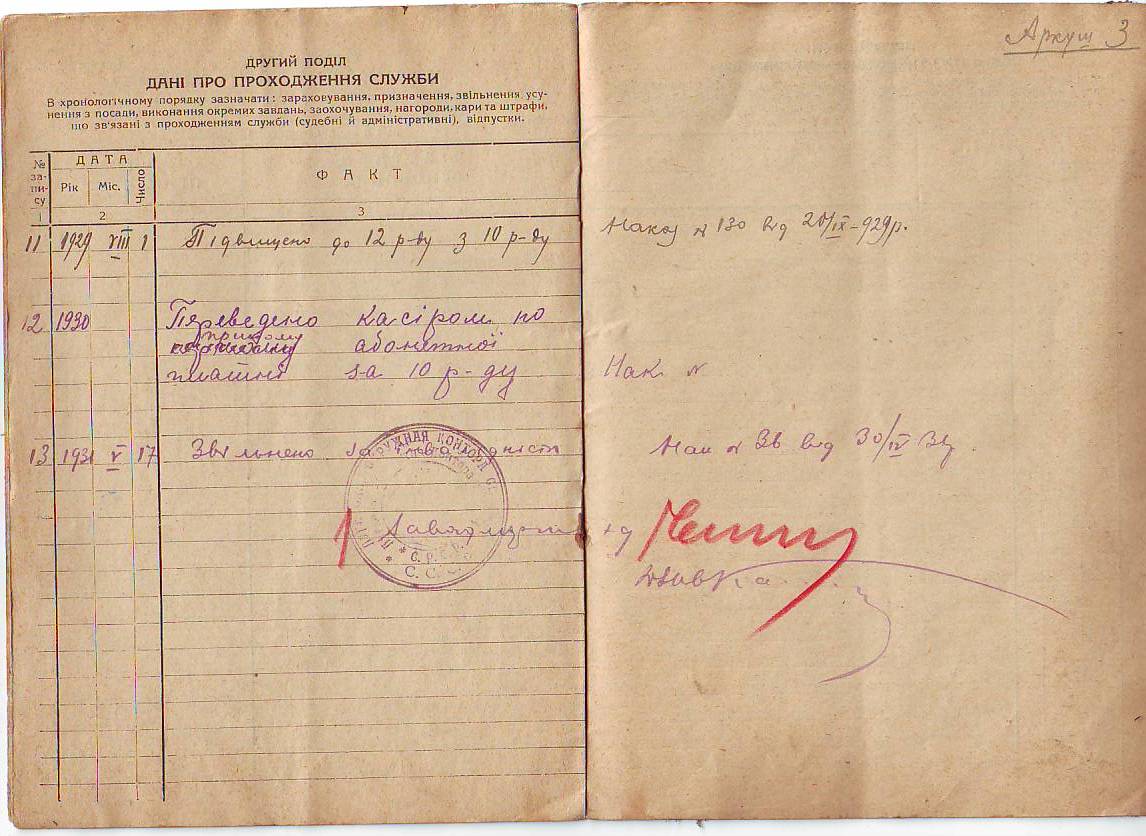 Аркуш 3
ДРУГИЙ ПОДІЛ
ДАНІ ПРО ПРОХОДЖЕННЯ СЛУЖБИ
В хронологічному порядку зазначати: зараховування, призначення, звільнення усу-
нення з посади, виконання окремих завдань, заохочування, нагороди, кари та штрафи,
що зв'язані з проходженням служби (судебні й адміністративні), відпустки.
№ за-пи-су ДАТА ФАКТ
Рік Міс. Число
1 2 3
11 1929 VIII 1 Підвищено до 12 р-ду з 10 р-ду Наказ № 130 від /IX-929р.
12 1930 Переведено касіром по
прийому абонентної
платні за 10 р-ду Нак №
13 1931 V 17 Звільнено за Нак № 36 від 30/IV 31
ОКРУЖНАЯ КОНТОРА
С.С.С.